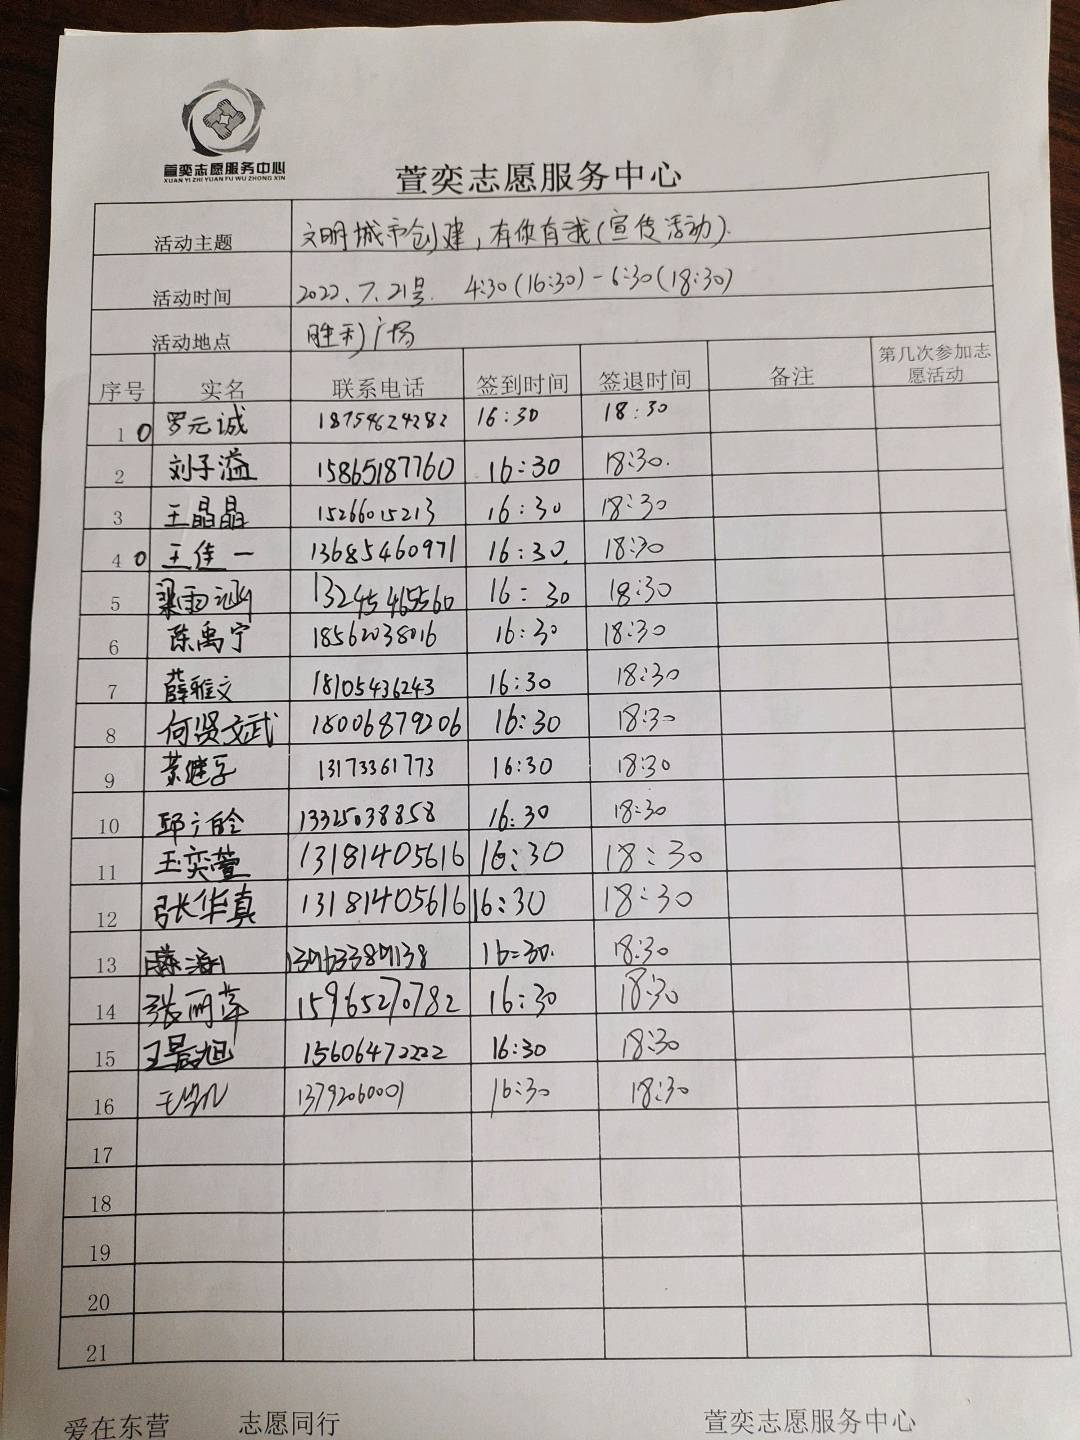 萱奕志愿服务中心
XUAN YI ZHI YUAN FU WU ZHONG XIN
萱奕志愿服务中心
活动主题 文明城市创建，有你有我（宣传活动）.
活动时间 2022.7.21号. 4:30(16:30)-6:30(18:30)
活动地点 胜利广场
序号 实名 联系电话 签到时间 签退时间 备注 第几次参加志愿活动
1 0 罗元诚 18754624282 16:30 18:30
2 刘子溢 15865187760 16:30 18:30.
3 王晶晶 15266015213 16:30 18:30
4 0 王佳一 13685460971 16:30. 18:30
5 梁雨涵 13245465560 16:30 18:30
6 陈禹宁 18562038016 16:30 18:30
7 薛雅文 18105436243 16:30 18:30
8 何贤文武 18006879206 16:30 18:30
9 13173361773 16:30 18:30
10 13325038858 16:30 18:30
11 王奕萱 13181405616 16:30 18:30
12 张华真 13181405616 16:30 18:30
13 16:30. 18:30
14 张丽萍 15965270782 16:30 18:30
15 王晨旭 15606472222 16:30 18:30
16 13792060001 16:30 18:30
17
18
19
20
21
爱在东营 志愿同行 萱奕志愿服务中心